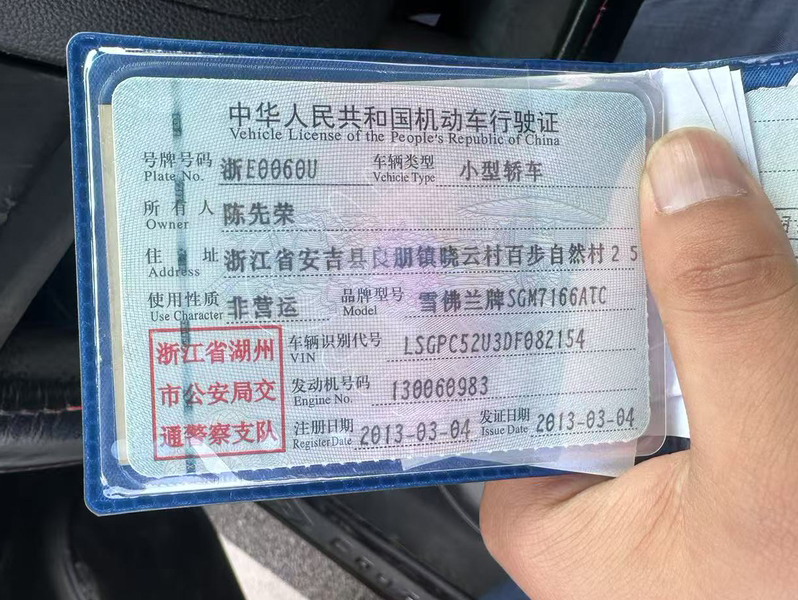 中华人民共和国机动车行驶证
Vehicle License of the People's Republic of China
号牌号码 浙E0060U 车辆类型 小型轿车
Plate No. Vehicle Type
所有人 陈先荣
Owner
住址 浙江省安吉县良朋镇晓云村百步自然村25
Address
使用性质 非营运 品牌型号 雪佛兰牌SGM7166ATC
Use Character Model
浙江省湖州
市公安局交
通警察支队
车辆识别代号 LSGPC52U3DF082154
VIN
发动机号码 130060983
Engine No.
注册日期 2013-03-04 发证日期 2013-03-04
Register Date Issue Date